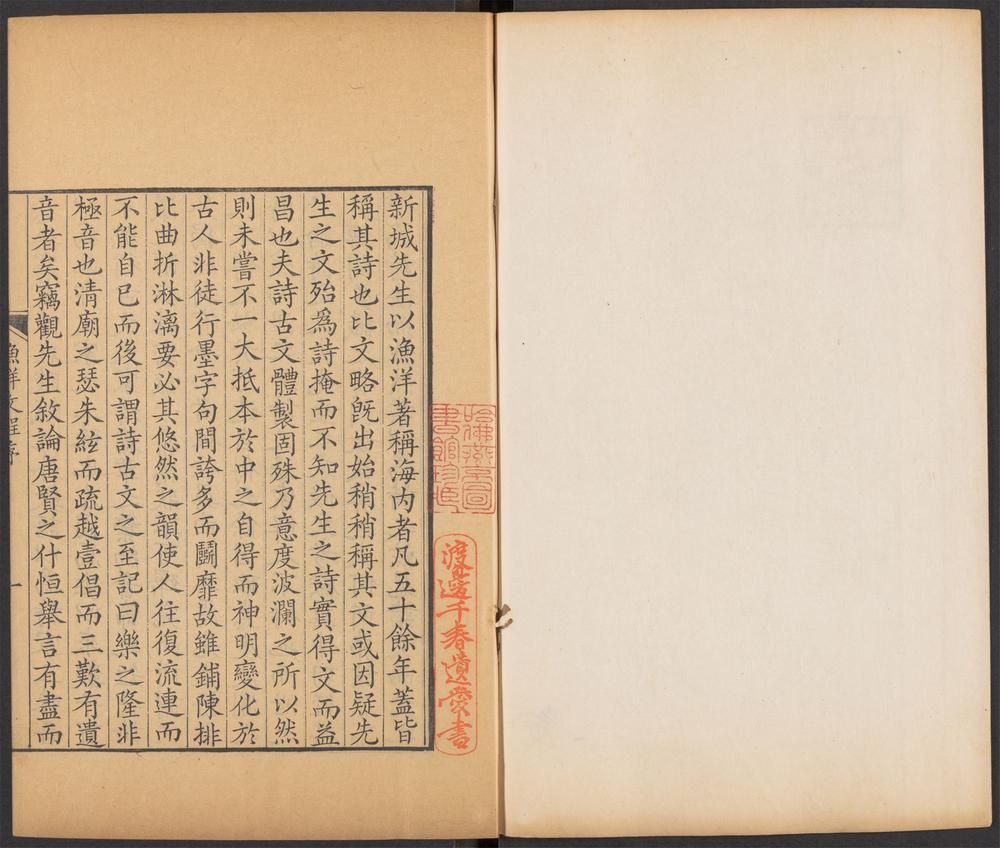 新城先生以漁洋著稱海內者凡五十餘年蓋皆
稱其詩也比文略旣出始稍稍稱其文或因疑先
生之文殆爲詩掩而不知先生之詩實得文而益
昌也夫詩古文體製固殊乃意度波瀾之所以然
則未嘗不一大抵本於中之自得而神明變化於
古人非徒行墨字句間誇多而鬬靡故雖鋪陳排
比曲折淋漓要必其悠然之韻使人往復流連而
不能自已而後可謂詩古文之至記曰樂之隆非
極音也清廟之瑟朱絃而疏越壹倡而三歎有遺
音者矣竊觀先生敘論唐賢之什恒舉言有盡而
漁洋文 序
一
哈佛燕京圖
書館珍藏
渡邊千春遺愛書